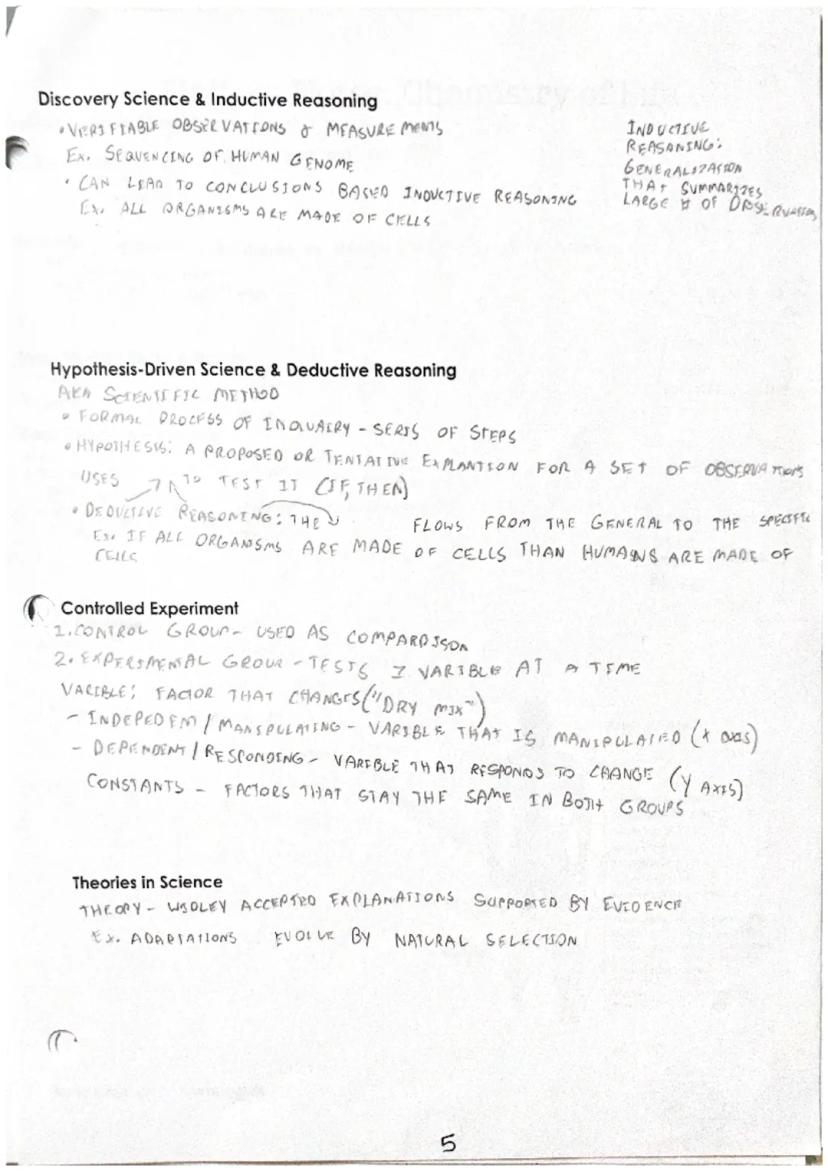 Discovery Science & Inductive Reasoning
• VERIFIABLE OBSERVATIONS & MEASUREMENTS
Ex. SEQUENCING OF HUMAN GENOME
• CAN LEAD TO CONCLUSIONS BASED INDUCTIVE REASONING
Ex. ALL ORGANISMS ARE MADE OF CELLS
INDUCTIVE
REASONING:
GENERALIZATION
THAT SUMMARIZES
LARGE # OF OBSERVATIONS
Hypothesis-Driven Science & Deductive Reasoning
AKA SCIENTIFIC METHOD
• FORMAL PROCESS OF INQUAIRY - SERIS OF STEPS
• HYPOTHESIS: A PROPOSED OR TENTATIVE EXPLANTION FOR A SET OF OBSERVATIONS
USES TO TEST IT (IF, THEN)
• DEDUCTIVE REASONING: THE FLOWS FROM THE GENERAL TO THE SPECIFIC
Ex. IF ALL ORGANISMS ARE MADE OF CELLS THAN HUMANS ARE MADE OF
CELLS
Controlled Experiment
1. CONTROL GROUP - USED AS COMPARDISON
2. EXPERIMENTAL GROUP - TESTS 1 VARIBLE AT A TIME
VARIBLE: FACTOR THAT CHANGES ("DRY MIX")
- INDEPEDENT / MANIPULATING - VARIBLE THAT IS MANIPULATED (X axis)
- DEPENDENT / RESPONDING - VARIBLE THAT RESPONDS TO CHANGE (Y AXIS)
CONSTANTS - FACTORS THAT STAY THE SAME IN BOTH GROUPS
Theories in Science
THEORY - WIDLEY ACCEPTED EXPLANATIONS SUPPORTED BY EVIDENCE
Ex. ADAPTATIONS EVOLVE BY NATURAL SELECTION
5